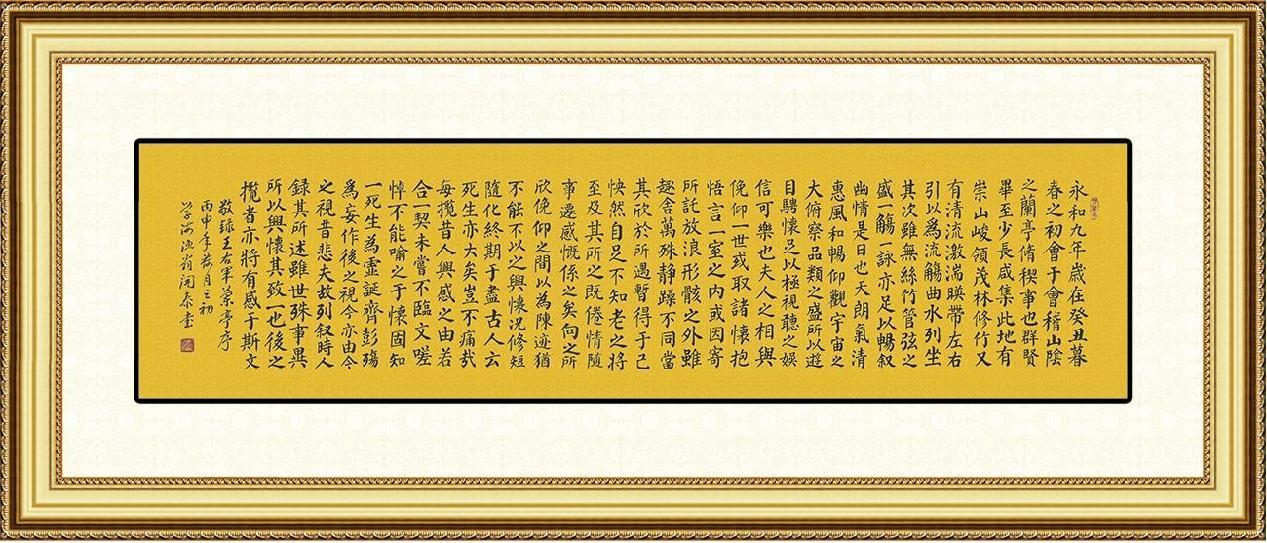 永和九年歲在癸丑暮
春之初會于會稽山陰
之蘭亭脩稧事也群賢
畢至少長咸集此地有
崇山峻領茂林修竹又
有清流激湍暎帶左右
引以爲流觴曲水列坐
其次雖無絲竹管弦之
盛一觴一詠亦足以暢叙
幽情是日也天朗氣清
惠風和暢仰觀宇宙之
大俯察品類之盛所以遊
目騁懷足以極視聽之娛
信可樂也夫人之相與
俛仰一世或取諸懷抱
悟言一室之内或因寄
所託放浪形骸之外雖
趣舍萬殊静躁不同當
其欣於所遇暫得于己
怏然自足不知老之將
至及其所之既倦情隨
事遷感慨係之矣向之所
欣俛仰之間以為陳迹猶
不能不以之興懷況修短
隨化終期于盡古人云
死生亦大矣豈不痛哉
每攬昔人興感之由若
合一契未嘗不臨文嗟
悼不能喻之于懷固知
一死生為虛誕齊彭殤
爲妄作後之視今亦由今
之視昔悲夫故列叙時人
録其所述雖世殊事異
所以興懷其致一也後之
攬者亦將有感于斯文
敬録王右軍蘭亭序
丙申年月之初
学海漁翁泰書